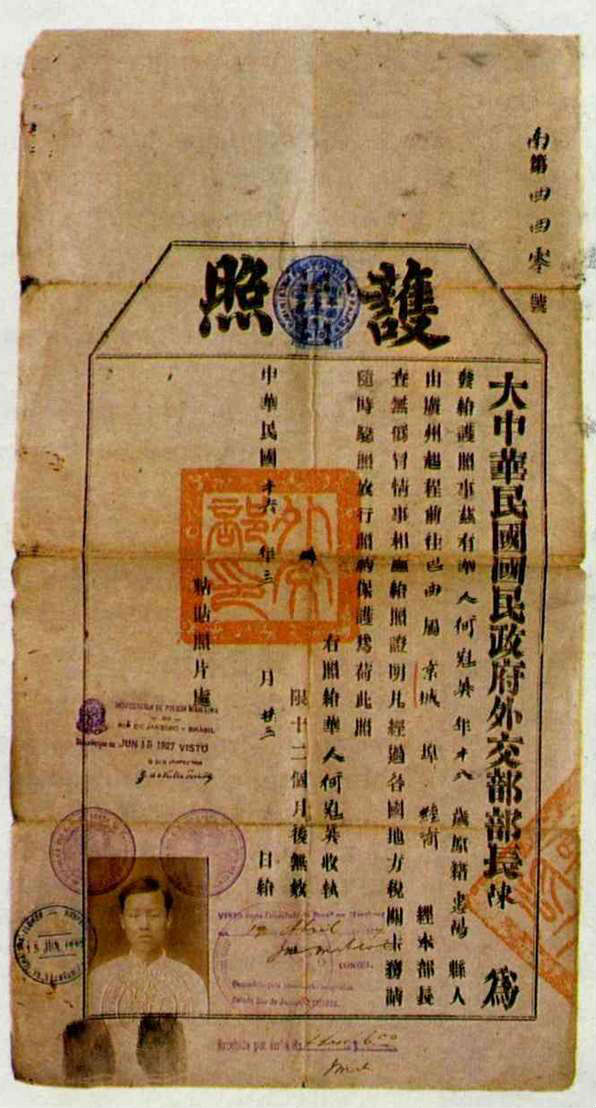 南第四四零號
護照
大中華民國國民政府外交部部長陳 為
發給護照事茲有華人何冠英年十八歲原籍惠陽縣人
由廣州起程前往巴西屬京城埠經商 經本部長
查無假冒情事相應給照證明凡經過各國地方稅關卡務請
隨時驗照放行照約保護為荷此照
右照給華人何冠英收執
限十二個月後無效
中華民國十六年三月廿三日給
粘貼照片處
外交部印
INSPECTORIA DE POLICIA MARITIMA
RIO DE JANEIRO - BRASIL
JUN 15 1927 VISTO
VISTO
19 Abril
CONSUL